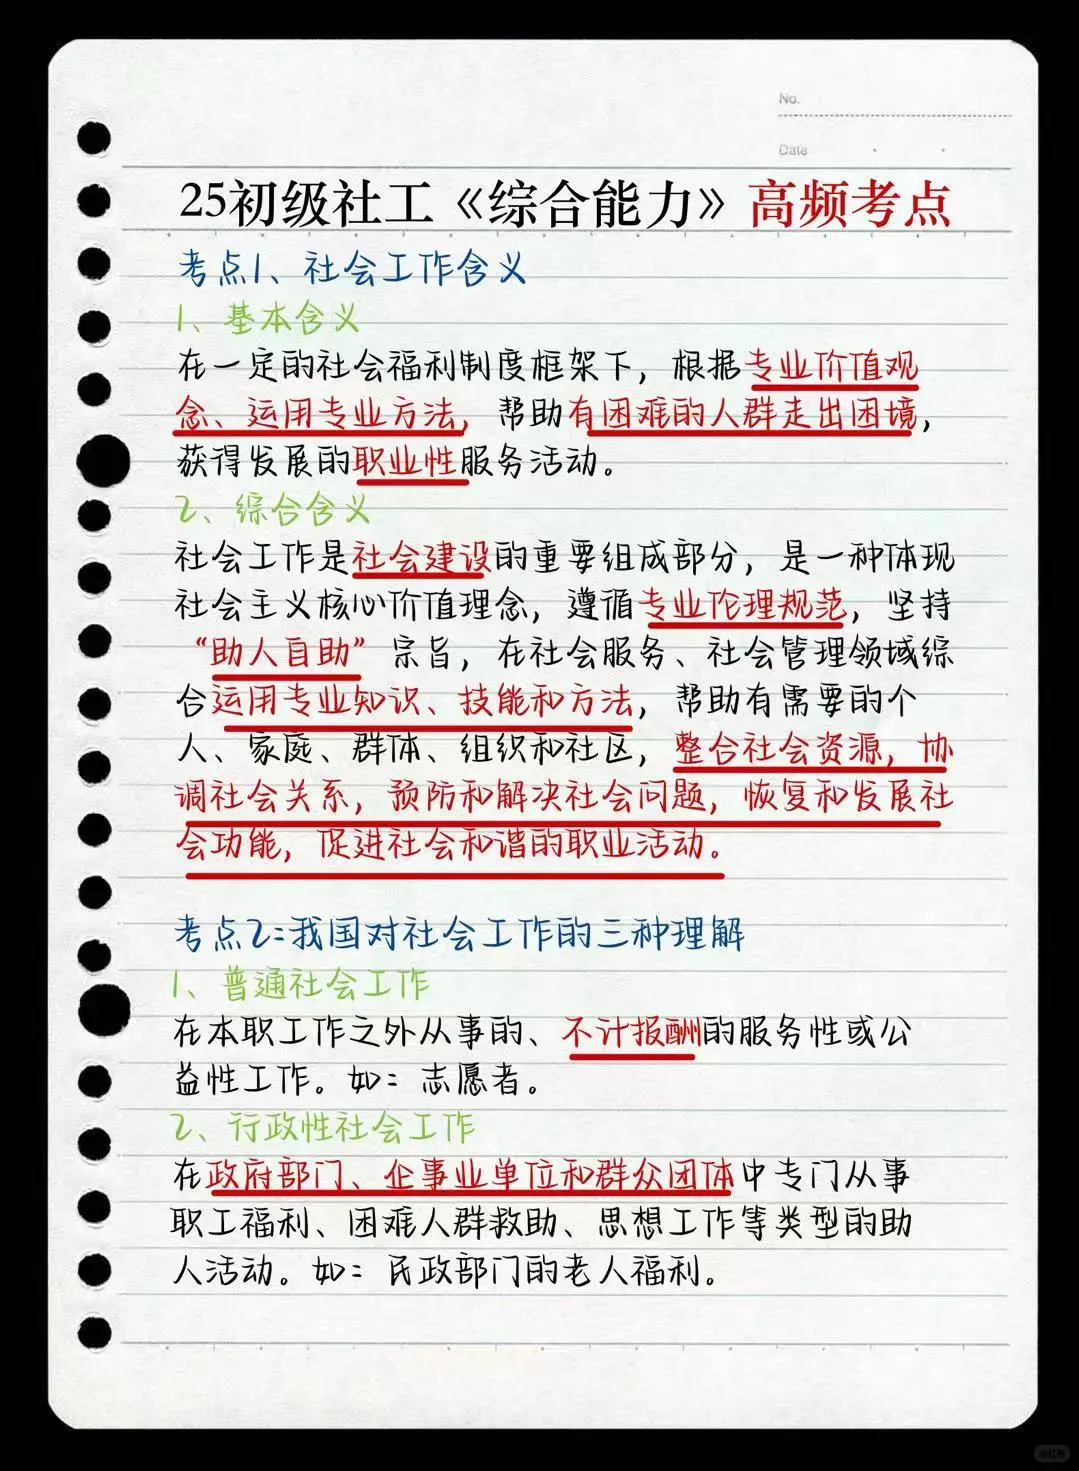 No.
Date
25初级社工《综合能力》高频考点
考点1、社会工作含义
1、基本含义
在一定的社会福利制度框架下，根据专业价值观
念、运用专业方法，帮助有困难的人群走出困境，
获得发展的职业性服务活动。
2、综合含义
社会工作是社会建设的重要组成部分，是一种体现
社会主义核心价值理念，遵循专业伦理规范，坚持
“助人自助”宗旨，在社会服务、社会管理领域综
合运用专业知识、技能和方法，帮助有需要的个
人、家庭、群体、组织和社区，整合社会资源，协
调社会关系，预防和解决社会问题，恢复和发展社
会功能，促进社会和谐的职业活动。
考点2：我国对社会工作的三种理解
1、普通社会工作
在本职工作之外从事的、不计报酬的服务性或公
益性工作。如：志愿者。
2、行政性社会工作
在政府部门、企事业单位和群众团体中专门从事
职工福利、困难人群救助、思想工作等类型的助
人活动。如：民政部门的老人福利。
小红书